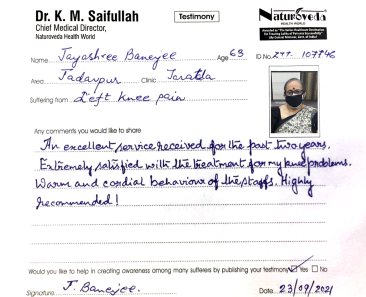 Dr. K. M. Saifullah
Chief Medical Director,
Naturoveda Health World
Testimony
Naturoveda
HEALTH WORLD
Name Jayashree Banerjee Age 63 ID No. 107746
Area Jadavpur Clinic Taratla
Suffering from Left knee pain
Any comments you would like to share
An excellent service received for the past two years.
Extremely satisfied with the treatment for my knee problems.
Warm and cordial behaviour of the staffs. Highly
recommended!
Would you like to help in creating awareness among many sufferers by publishing your testimony Yes No
Signature J. Banerjee. Date 23/09/2021